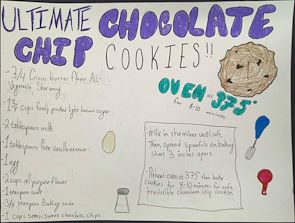 ULTIMATE CHOCOLATE
CHIP COOKIES!!
- 3/4 Crisco butter flavor ALL-
Vegetable Shortening
1 1/4 cups firmly packed light brown sugar
-2 tablespoons milk
1 tablespoon pure vanilla extract
1 egg
2 cups all purpose flour
1 teaspoon salt
3/4 teaspoon Baking soda
-1 cup semi sweet chocolate chips
OVEN at 375°
for 8-10
Mix in the mixer until soft,
Then spread spoonfuls on baking
sheet 3 inches apart.
Preheat oven at 375° then bake
cookies for 8-10 minutes for soft,
chocolate chip cookies